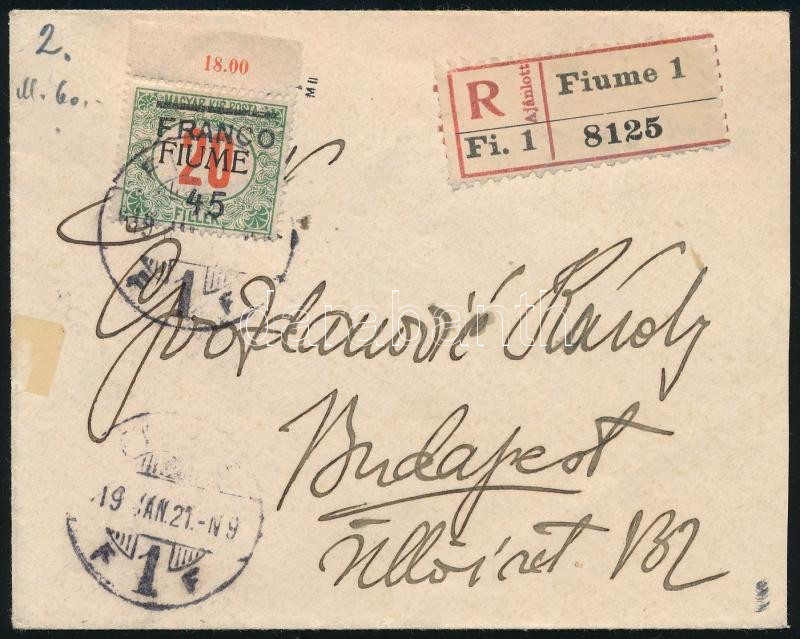 2.
M. 60.-
18.00
M II
MAGYAR KIR. POSTA
FRANCO
FIUME
20
45
FILLÉR
R
Ajánlott
Fiume 1
Fi. 1
8125
1
Gvozdanović Károly
Budapest
Üllői út 132
darabanth
19 JAN. 21. - N 9
1